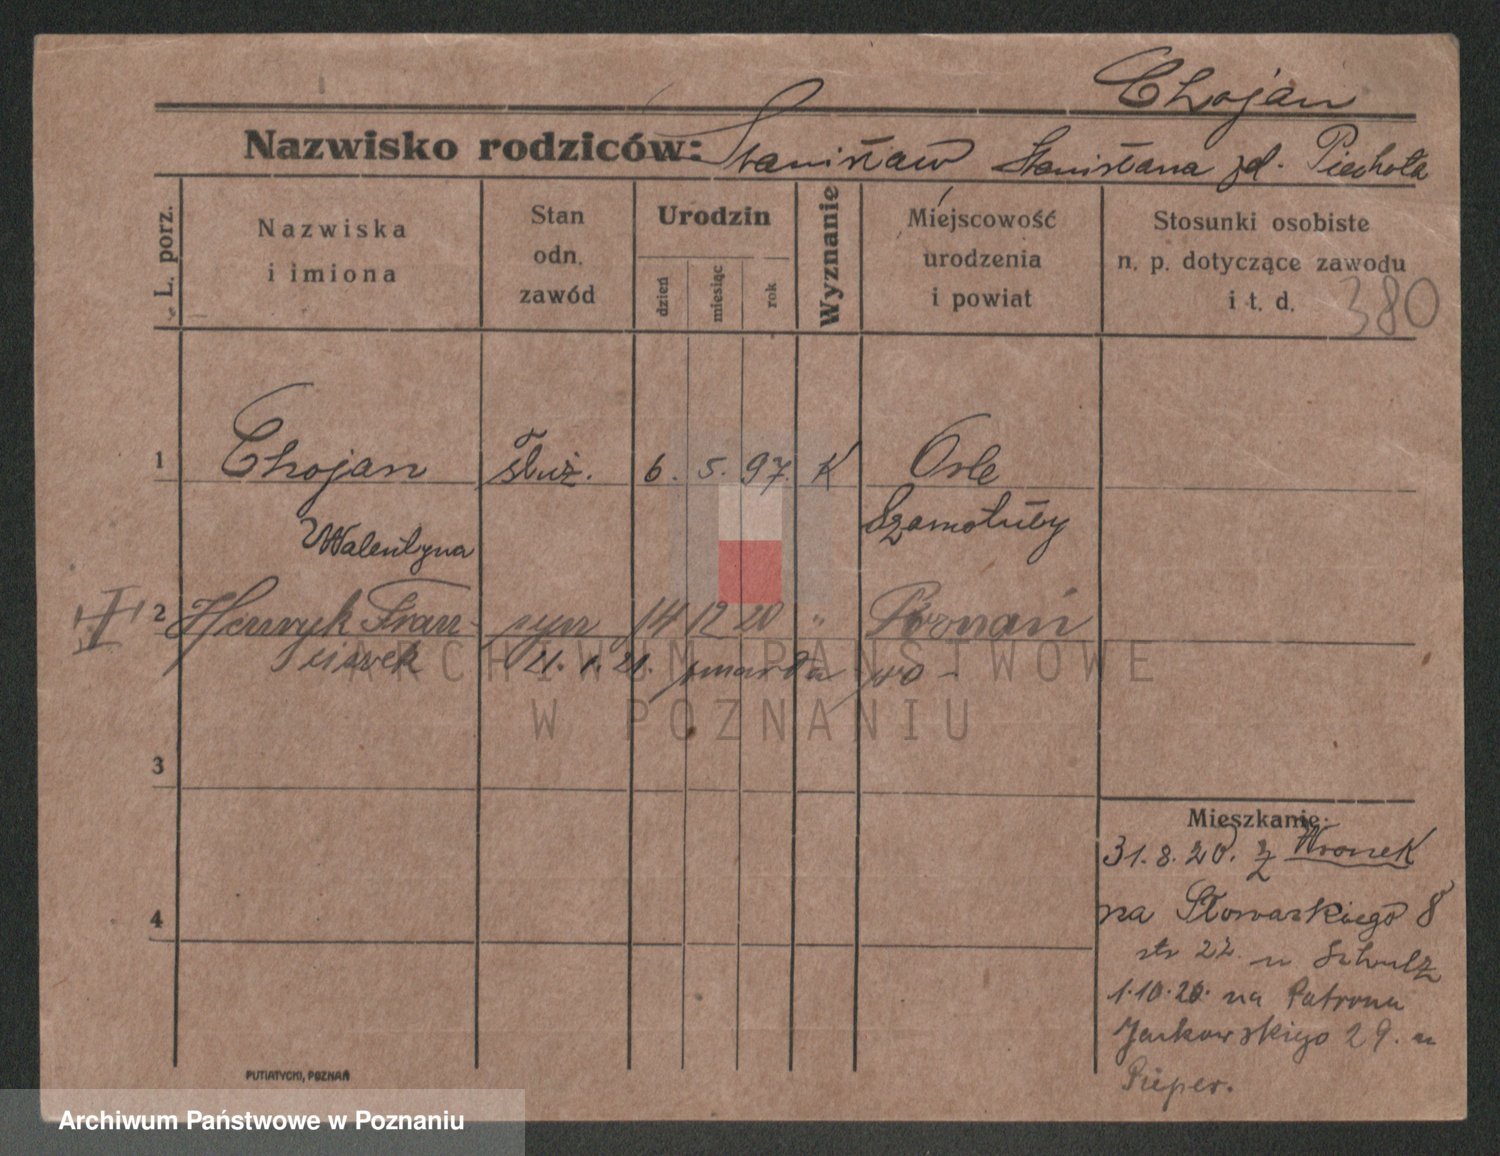 Chojan
Nazwisko rodziców: Stanisław Stanisława zd. Piechota
L. porz.
Nazwiska
i imiona
Stan
odn.
zawód
Urodzin
dzień
miesiąc
rok
Wyznanie
Miejscowość
urodzenia
i powiat
Stosunki osobiste
n. p. dotyczące zawodu
i t. d.
380
1 Chojan służ. 6. 5. 97. K
Walentyna Szamotuły
2 Henryk Fran- syn 14 12 20 " Poznań
ciszek 21. 1. 21.
3
4
Mieszkanie:
31. 8. 20. z Wronek
na Słowackiego 8
22 u Schulz
1.10.20. na Patrona
Jackowskiego 29. u
Pieper.
PUTIATYCKI, POZNAŃ
ARCHIWUM PAŃSTWOWE
W POZNANIU
Archiwum Państwowe w Poznaniu